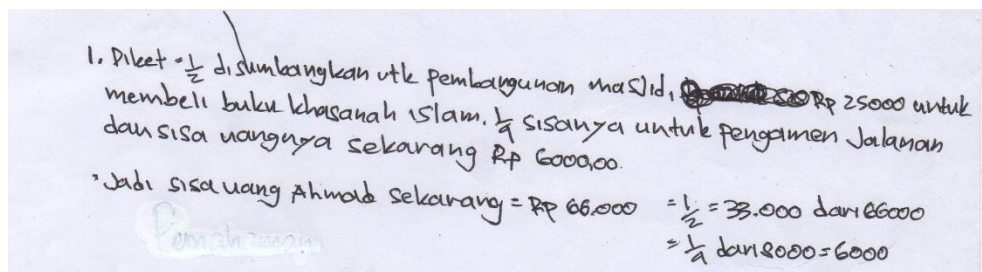 1. Diket = 1/2 disumbangkan utk pembangunan masjid, Rp 25000 untuk
membeli buku khasanah islam. 1/4 sisanya untuk pengamen Jalanan
dan sisa uangnya sekarang Rp 6000,00.
Jadi sisa uang Ahmad sekarang = Rp 66.000 = 1/2 = 33.000 dari 66000
Pemahaman = 1/4 dari 8000 = 6000